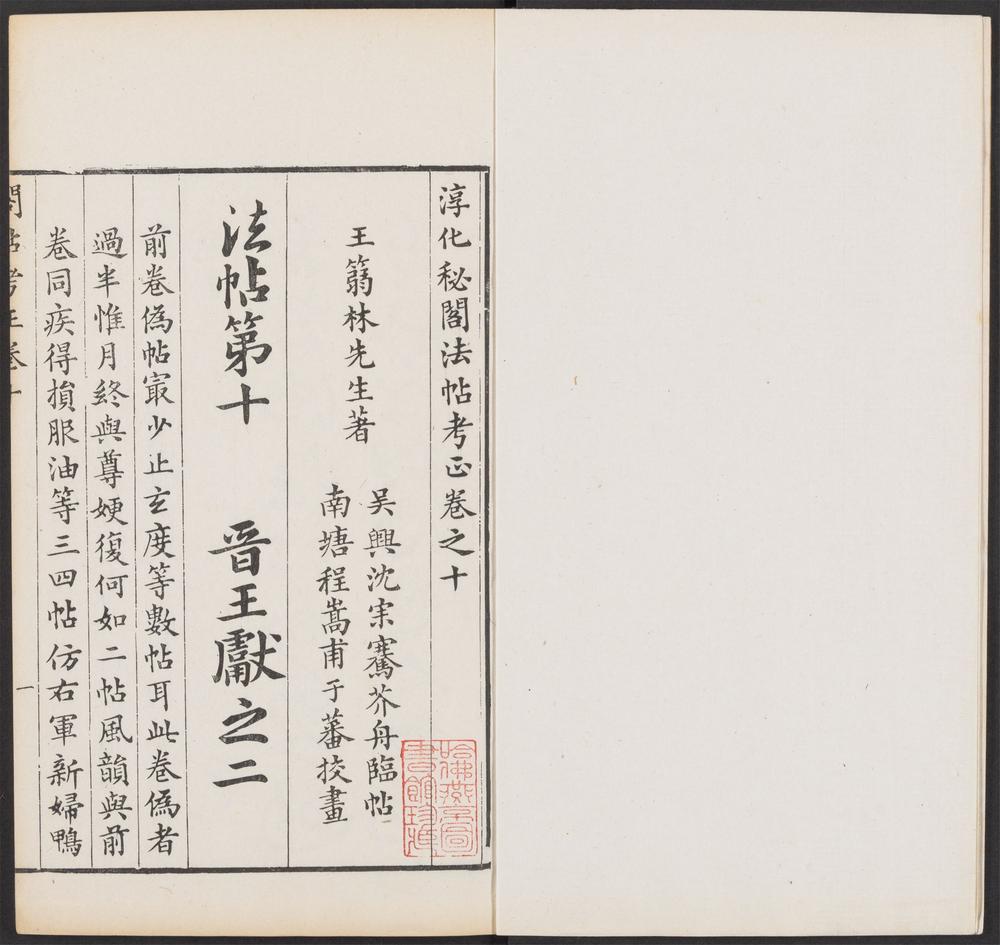 淳化秘閣法帖考正卷之十
王篛林先生著
吳興沈宗騫芥舟臨帖
南塘程嵩甫于蕃挍畫
法帖第十 晋王獻之二
前卷偽帖㝡少止玄度等數帖耳此卷偽者
過半惟月終與尊㛐復何如二帖風韻與前
卷同疾得損服油等三四帖仿右軍新婦鴨
閣帖考正卷十
一
哈佛燕京圖
書館珍藏